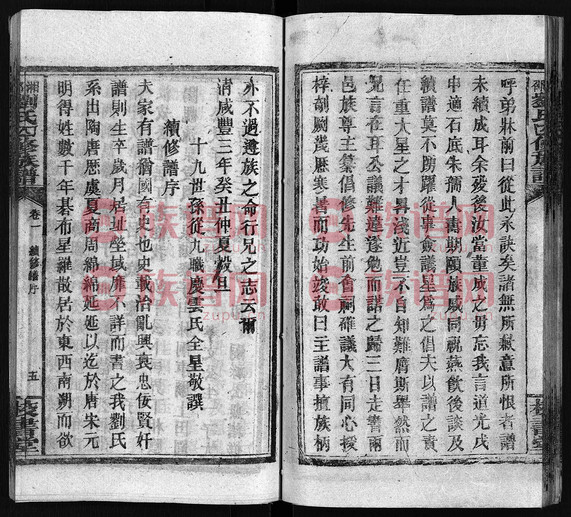 呼弟牀前曰從此永訣矣諸無所縈意所恨者譜
未續成耳余殁後汝當董成之毋忘我言道光戊
申適石底朱揣人壽期頤族戚同視燕飲後談及
續譜莫不踴躍從事僉議星爲之倡夫以譜之責
任重大星之才昇淺近豈不自知難膺斯舉然而
兄言在耳公議難違遂勉而諾之歸三日走書兩
邑族尊主橐倡修先生前會嗣確議大有同心援
梓劂歲厯寒暑而功始竣敢曰主譜事擅族柄
亦不過遵族之命行兄之志云爾
清咸豐三年癸丑仲夏穀旦
十九世孫從九職慶雲氏全星敬譔
續修譜序
夫家有譜猶國有史也史載治亂興衰忠佞賢奸
譜則生卒歲月居址坐域靡不詳而書之我劉氏
系出陶唐厯虞夏商周綿綿延延以迄於唐宋元
明得姓數千年碁布星羅散居於東西南朔而欲
劉氏四修族譜
卷一
續修譜序
五
族谱网
zupu.cn